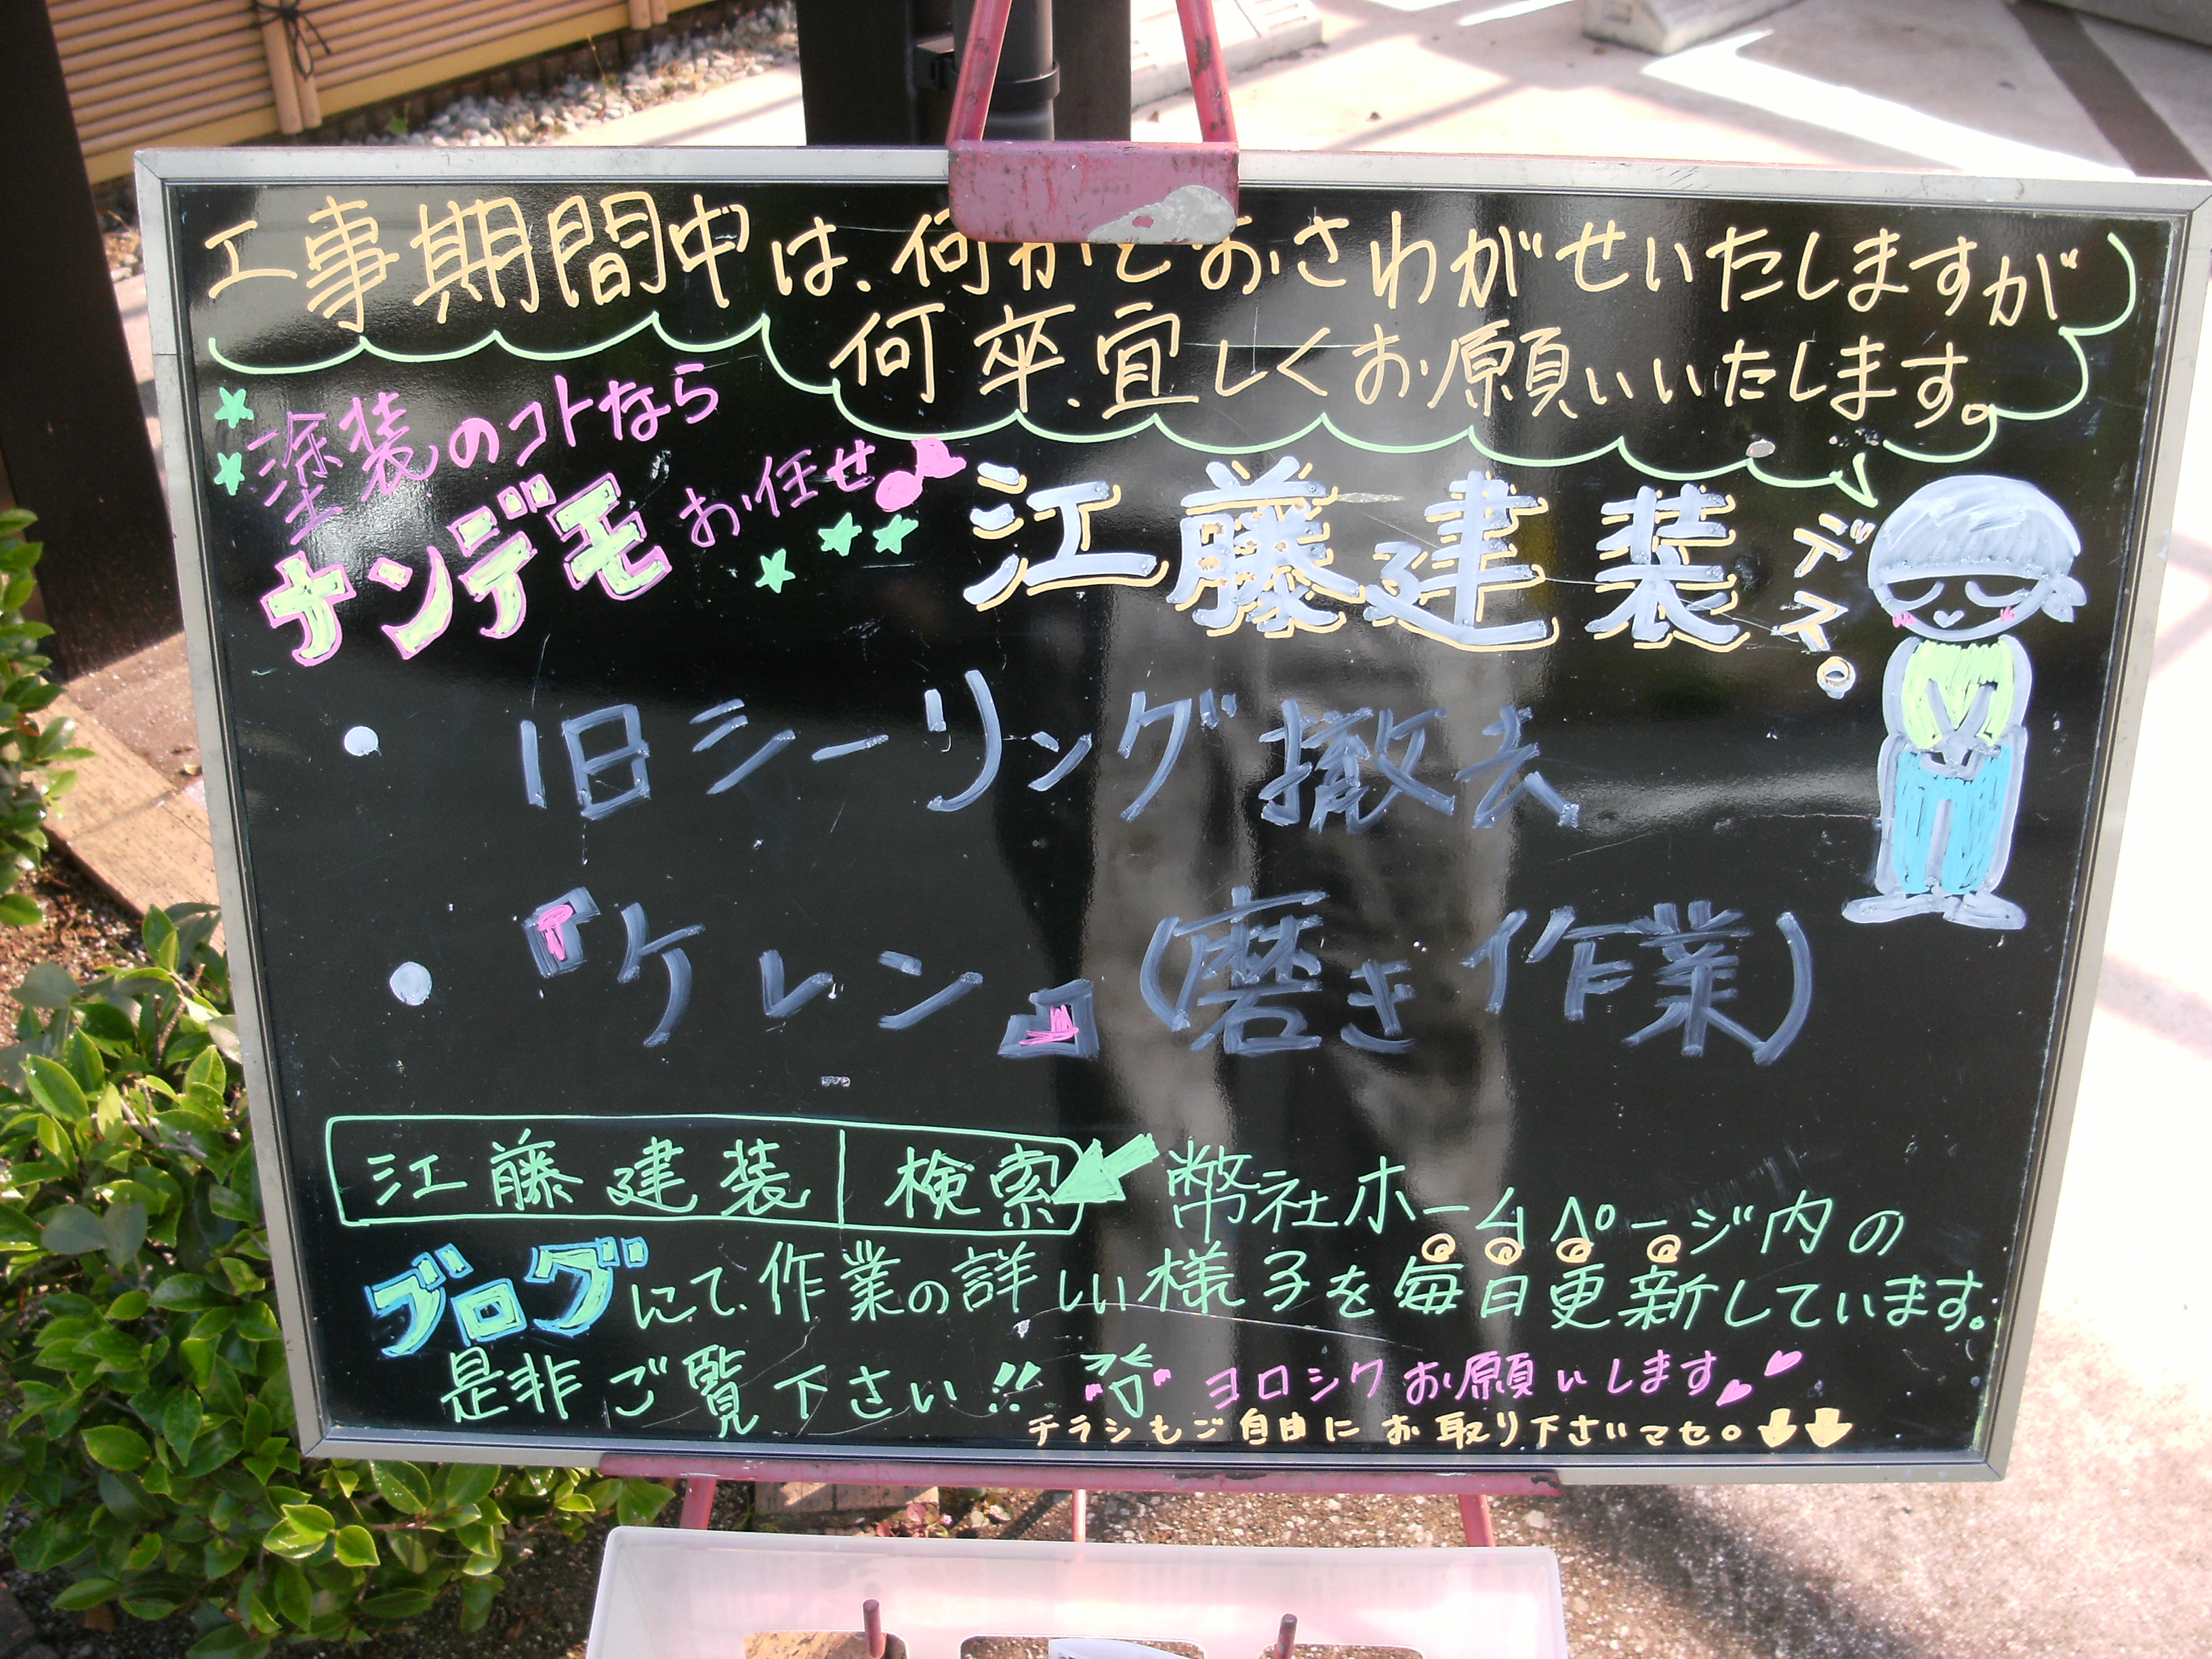 工事期間中は、何かとおさわがせいたしますが
何卒、宜しくお願いいたします。
塗装のコトなら
ナンデモお任せ
江藤建装デス。
・旧シーリング撤去
・『ケレン』(磨き作業)
江藤建装|検索 弊社ホームページ内の
ブログにて、作業の詳しい様子を毎日更新しています。
是非ご覧下さい!! ヨロシクお願いします
チラシもご自由にお取り下さいマセ。